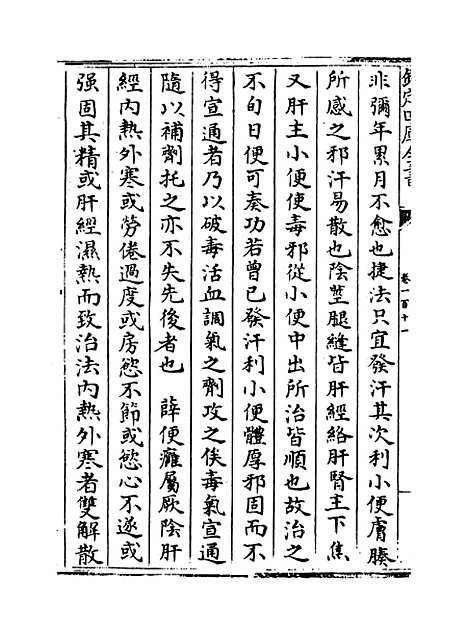 欽定四庫全書
卷一百十一
非彌年累月不愈也捷法只宜發汗其次利小便膚腠
所感之邪汗易散也陰莖腿縫皆肝經絡肝腎主下焦
又肝主小便使毒邪從小便中出所治皆順也故治之
不旬日便可奏功若曾已發汗利小便體厚邪固而不
得宣通者乃以破毒活血調氣之劑攻之俟毒氣宣通
隨以補劑托之亦不失先後者也　薛便癰屬厥陰肝
經內熱外寒或勞倦過度或房慾不節或慾心不遂或
强固其精或肝經濕熱而致治法內熱外寒者雙解散